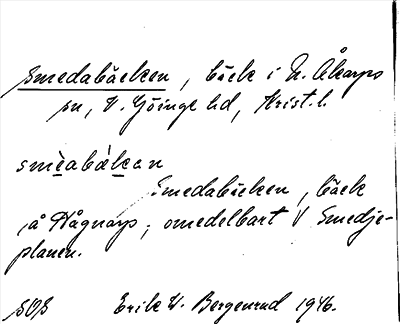 Smedabäcken, bäck i N. Åkarps
sn, V. Göinge hd, Krist. l.
smèabäkan
Smedabäcken, bäck
å Hågnarp, omedelbart V Smedje-
planen.
SOS Erik W. Bergenrud 1946.